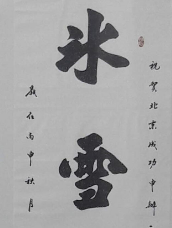 祝贺北京成功申办
冰雪
岁在丙申秋月